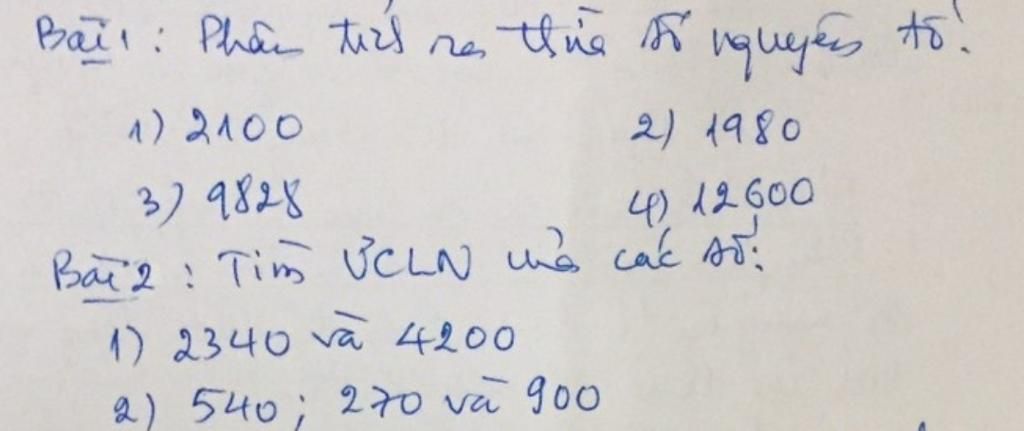 Bài 1: Phân tích ra thừa số nguyên tố.
1) 2100 2) 1980
3) 9828 4) 12600
Bài 2: Tìm ƯCLN của các số:
1) 2340 và 4200
2) 540; 270 và 900